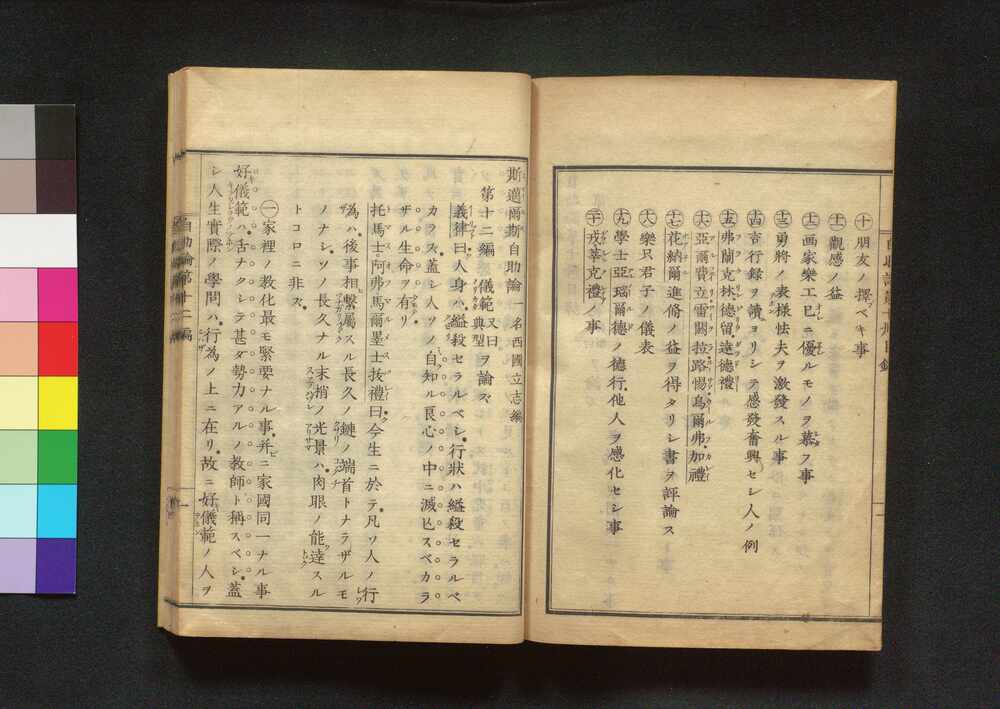 十 朋友ノ擇ブベキ事
十一 觀感ノ益
十二 画家樂工已ニ優ルモノヲ慕フ事
十三 勇將ノ表樣怯夫ヲ激發スル事
十四 言行録ヲ讀ヨリシテ感發奮興セシ人ノ例
十五 弗蘭克林德留達德禮
十六 亞爾費立雷關拉路惕烏爾弗加禮
十七 花納爾進脩ノ益ヲ得タリシ書ヲ評論ス
十八 樂只君子ノ儀表
十九 學士亞瑙爾德ノ德行他人ヲ感化セシ事
二十 戎莘克禮ノ事
斯邁爾斯自助論 一名西國立志編
第十二編 儀範又曰典型ヲ論ズ
義律曰人身ハ縊殺セラルベシ行狀ハ縊殺セラルベ
カラズ蓋シ人ソノ自知ル良心ノ中ニ滅亡スベカラ
ザル生命ヲ有リ
托馬士阿弗馬爾墨士抜禮曰今生ニ於テ凡ソ人ノ行
為ハ後事相繫屬スル長久ノ鏈ノ端首トナラザルモ
ノナシソノ長久ナル末梢ノ光景ハ肉眼ノ能達スル
トコロニ非ズ
一 家裡ノ教化最モ緊要ナル事并ニ家國同一ナル事
好儀範ハ舌ナクシテ甚ダ勢力アルノ教師ト稱スベシ蓋
シ人生實際ノ學問ハ行為ノ上ニ在リ故ニ好儀範ノ人ヲ
自助論第十二編
一